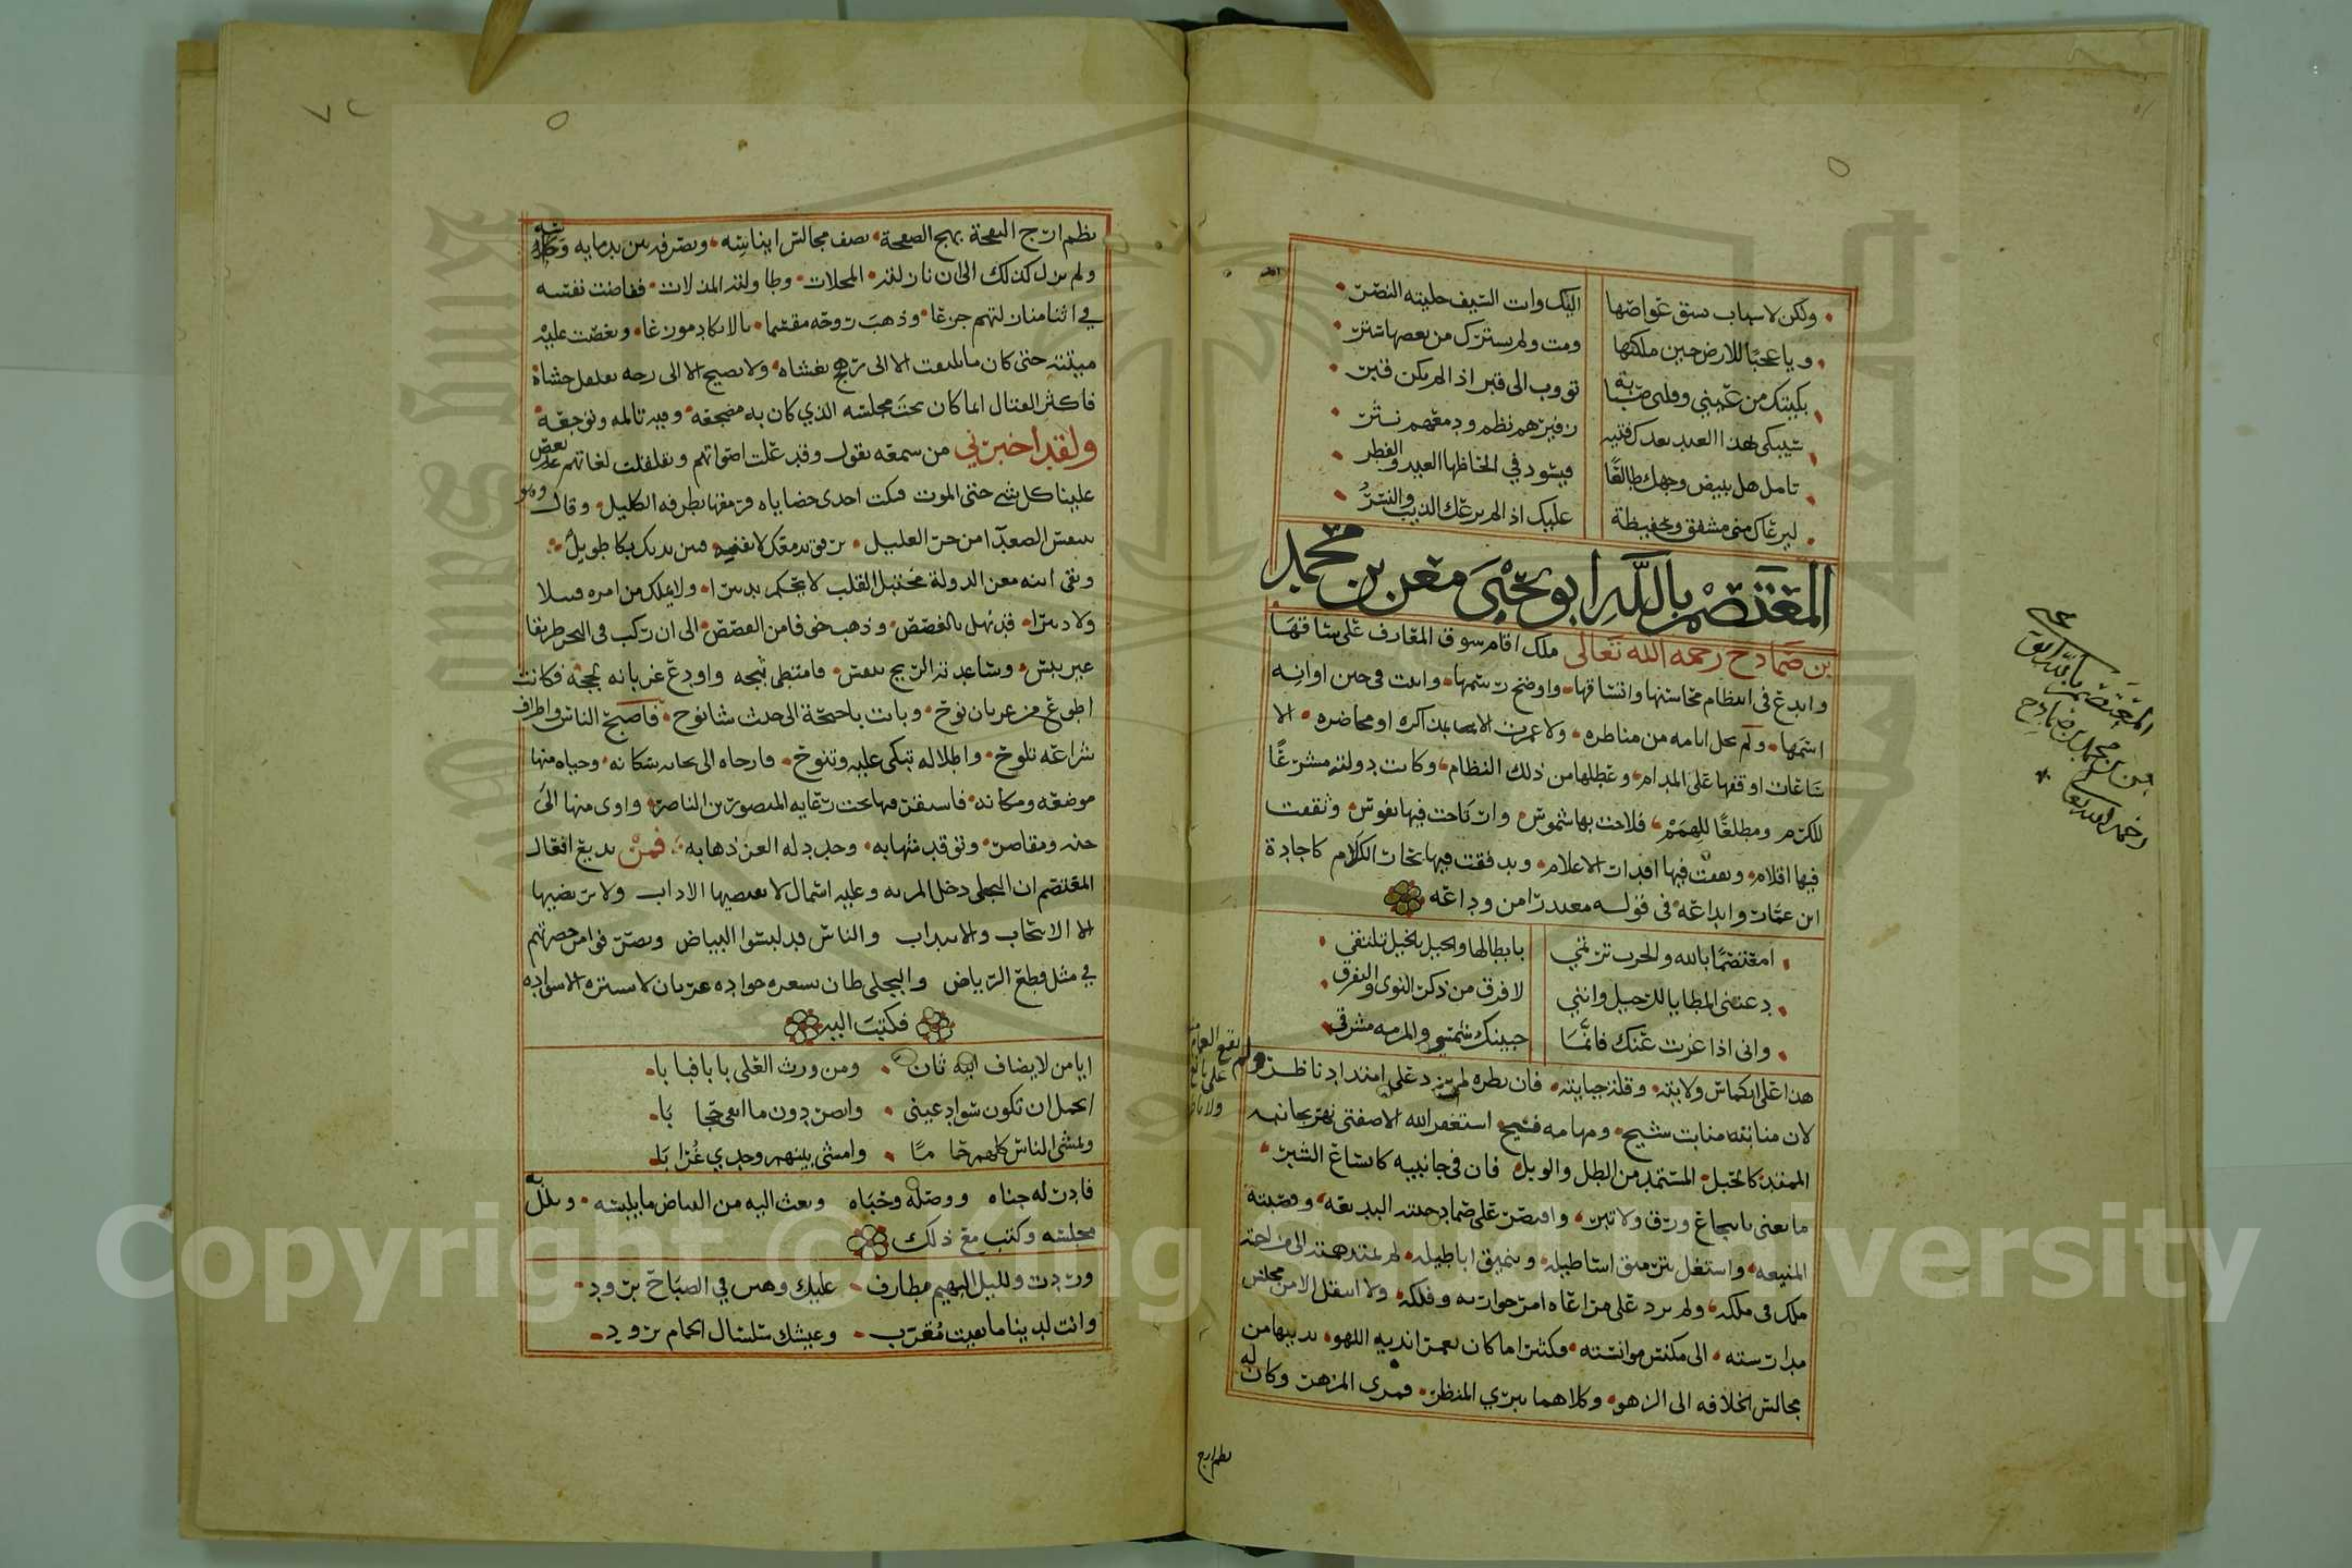 ولكن لاسباب سبق غواصها اليك وان السيف حليته النصر
ويا عجبا للارض حين ملكتها ومت ولم يستترك من بعضها شبر
بكيتك من عيني وقلبي صبابة تووب الى قبر اذا لم يكن قبر
سيبكى لهذا العبد بعدك فتية زفيرهم نظم ودمعهم نثر
تامل هل يبيض وجهك طالعا فيسود في الحاظها العيد والفطر
ليرعاك مني مشفق وحفيظة عليك اذا لم يرعك الذيب والنسر
المعتصم بالله ابو يحيى معن بن محمد
بن صمادح رحمه الله تعالى ملك اقام سوق المعارف على ساقها
وابدع في انتظام محاسنها واتساقها واوضح رسمها واثبت في حين اوانه
اسمها ولم تخل ايامه من مناظره ولا عمرت الا بمذاكره او محاضره الا
ساعات اوقفها على المدام وعطلها من ذلك النظام وكانت دولته مشرعا
للكرم ومطلعا للهمم فلاحت بها شموس وارتاحت فيها نفوس ونفقت
فيها اقلام وبعثت فيها اقدار الاعلام وتدفقت فيها بحار الكلام كاجادة
ابن عمار وابداعه في قوله معتذرا من وداعه
امعتصما بالله والحرب ترتمي بابطالها والخيل بالخيل تلتقي
دعتني المطايا للرحيل وانني لافرق من ذكر النوى والتفرق
واني اذا غربت عنك فانما جبينك شمسي والمريه مشرقي
هذا على انكماش ولايته وقلة جبايته فان نظره لم يزد على امتداد ناظر ولم يقع العيان على يانع ولا ناضر
لان منابته منابت شيح ومهامه فيح استغفر الله الا ضفتي نهر بجانبه
الممتد كالحبل المستمد من الطل والوبل فان في جانبيه كاتساع الشبر
ما يعني بانتجاع ورق ولا تبر واقتصر على صمادحيته البديعه وقصبته
المنيعه واشتغل بترميق اساطيله وتنميق اباطيله لم تمتد همته الى مزاحمة
ملك في ملكه ولم يرد على من اعاه امر حواره وفلكه ولا انتقل الا من مجلس
مدارسته الى مكنس موانسته فكثيرا ما كان يعمر اندية اللهو يديبها من
مجالس الخلافه الى الزهو وكلاهما سري المنظر قمري المزهر وكان له
نظم ارج
المعتصم بالله ابو يحيى
معن بن محمد بن صمادح
رحمه الله تعالى
٧٢
نظم ارج النفحة بهج الصفحة يصف مجالس ايناسه ويصرفه بين ندمايه وجلاسه
ولم يزل كذلك الى ان نازلته المحلات وطاولته المذلات ففاضت نفسه
في اثنا منازلتهم جزعا وذهبت روحه مقسما بالانكاد موزعا ونغصت عليه
ميتته حتى كان ما يلتفت الا الى رهج يغشاه ولا يصيخ الا الى رجه يقلقل حشاه
فاكثر القتال انما كان تحت مجلسه الذي كان به مضجعه وفيه تالمه وتوجعه
ولقد اخبرني من سمعه يقول وقد علت اصواتهم وتقلقلت لغاتهم نغص
علينا كل شي حتى الموت فبكت احدى حضاياه فرمقها بطرفه الكليل وقال وهو
يتنفس الصعدا من حر الغليل ترفق بدمعك لا تفنيه فبين يديك بكا طويل
وبقي ابنه معز الدولة مختبل القلب لا يحكم تدبيرا ولا يملك من امره قبيلا
ولا دبيرا قد نهل بالغصص وذهب خوفا من القصص الى ان ركب في البحر طريقا
غير يبس وساعدته الريح بنفس فامتطى ثبجه واودع غربانه لججه فكانت
اطوع من غربان نوح وبات باجحه الى حدث شانوح فاصبح الناس واطراف
شراعه تلوح واطلاله تبكي عليه وتنوح فارحاه الى بجايه سكانه وحياه منها
موضعه ومكانه فاستقر فيها تحت رعايه المنصور بن الناصر واوى منها الى
خدر ومقاصر وتوقد شهابه وجدد له العز ذهابه فمن بديع افعال
المعتصم ان البجلي دخل المريه وعليه اسمال لا تقتضيها الاداب ولا ترتضيها
الا الانتحاب والانتداب والناس قد لبسوا البياض وتصرفوا من حضرتهم
في مثل قطع الرياض والبجلي ظمان يسعره جواده عريان لا يستره الا سواده
فكتب اليه
ايا من لا يضاف اليه ثان ومن ورث العلى بابا فبابا
ايجمل ان تكون سواد عيني وابصر دون ما ابغي حجابا
ويمشي الناس كلهم حماما وامشي بينهم وحدي غرابا
فادر له حباه ووصله وحباه وبعث اليه من البياض ما يلبسه ويلل به
مجلسه وكتب مع ذلك
وردت ولليل البهيم مطارف عليك وهي في الصباح برود
وانت لدينا ما بقيت مقرب وعيشك سلسال الحمام برود
Copyright © King Saud University